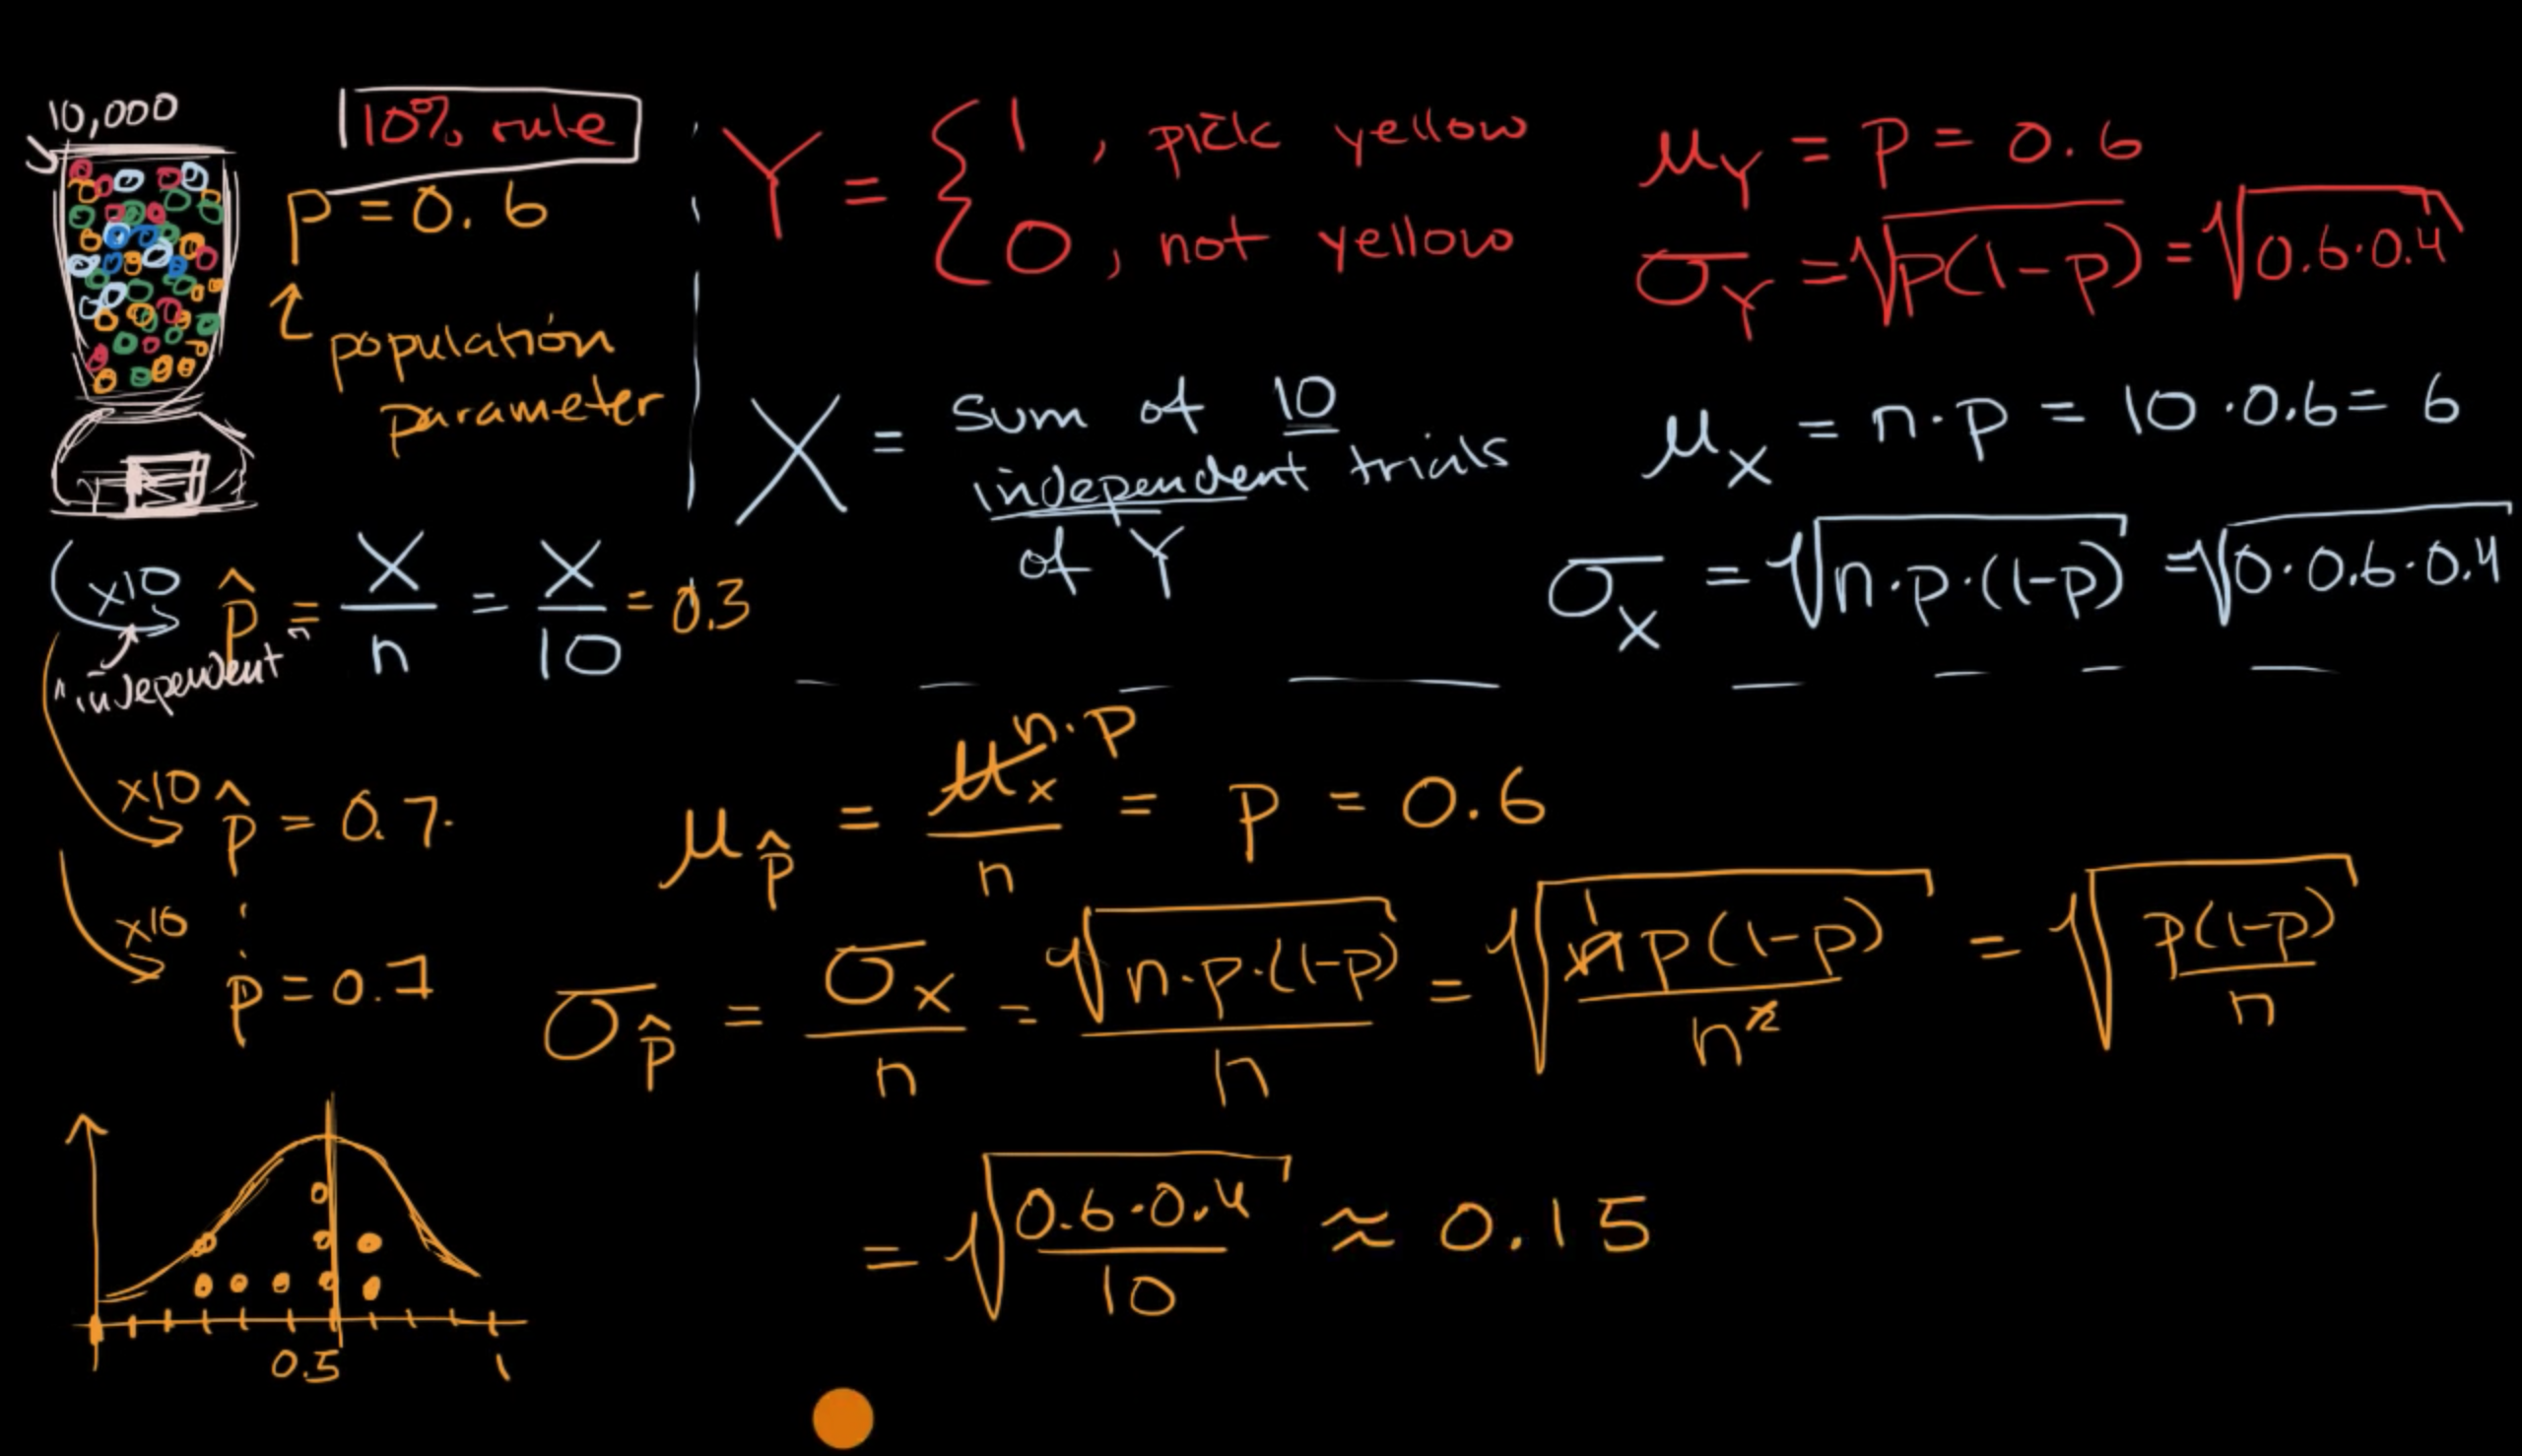 10,000
10% rule
p = 0.6
population
parameter
Y = { 1, pick yellow
0, not yellow
μ_Y = p = 0.6
σ_Y = √p(1-p) = √0.6·0.4
X = sum of 10
independent trials
of Y
μ_X = n·p = 10·0.6 = 6
σ_X = √n·p·(1-p) = √0·0.6·0.4
x10 p̂ = X/n = X/10 = 0.3
"independent"
x10 p̂ = 0.7
x10 p̂ = 0.7
μ_p̂ = μ_x/n = p = 0.6
n·p
σ_p̂ = σ_X/n = √n·p·(1-p)/n = √(np(1-p)/n²) = √(p(1-p)/n)
1
= √(0.6·0.4/10) ≈ 0.15
0.5 1